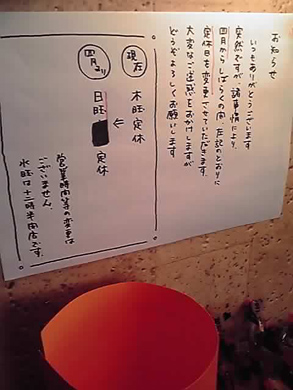 お知らせ
いつもありがとうございます
突然ですが、諸事情により、
四月からしばらくの間、左記のとおりに
定休日を変更させていただきます。
大変なご迷惑をおかけしますが
どうぞよろしくお願いします
現在
木曜定休
四月より
日曜
定休
営業時間等の変更は
ございません。
水曜は十二時半閉店です。